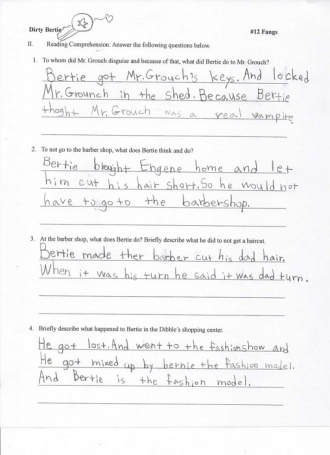 Dirty Bertie
#12 Fangs
II. Reading Comprehension: Answer the following questions below.
1. To whom did Mr. Grouch disguise and because of that, what did Bertie do to Mr. Grouch?
Bertie got Mr.Grouch's keys. And locked
Mr.Grounch in the shed. Because Bertie
thoght Mr. Grouch was a real vampire.
2. To not go to the barber shop, what does Bertie think and do?
Bertie brought Engene home and let
him cut his hair short. So he would not
have to go to the barbershop.
3. At the barber shop, what does Bertie do? Briefly describe what he did to not get a haircut.
Bertie made ther barber cut his dad hair.
When it was his turn he said it was dad turn.
4. Briefly describe what happened to Bertie in the Dibble's shopping center.
He got lost. And went to the fashionshow and
He got mixed up by bernie the fashion model.
And Bertie is the fashion model.